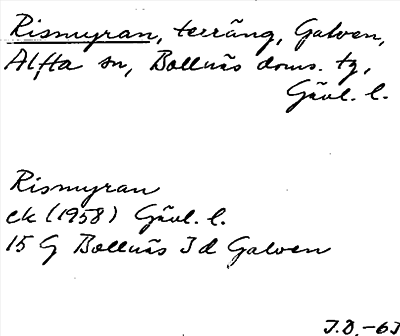 Rismyran, terräng, Galven,
Alfta sn, Bollnäs doms. tg,
Gävl. l.
Rismyran
ek (1958) Gävl. l.
15 G Bollnäs 3 d Galven
J.D.-63